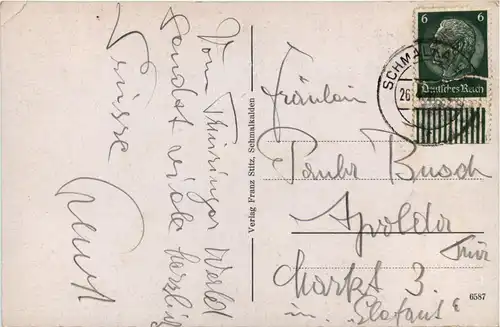 Vom Thüringer Wald
sendet viele herzliche
Grüsse
Verlag Franz Stitz, Schmalkalden
6 6
Deutsches Reich
SCHMALKAL
26
Fräulein
Busch
Apolda
Thür
Markt 3.
"Elefant"
6587